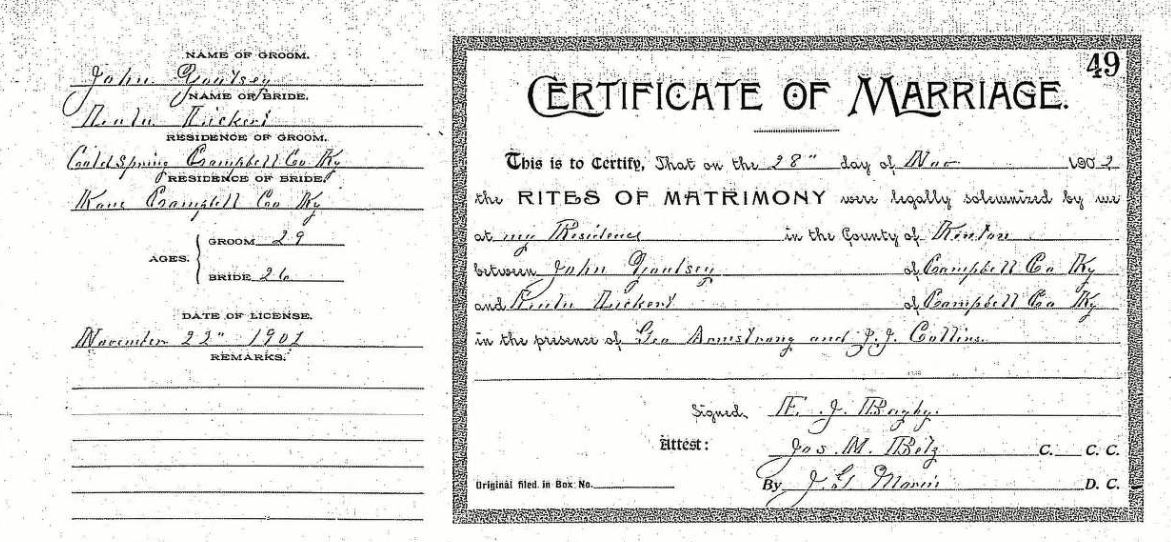 NAME OF GROOM.
John Youtsey
NAME OF BRIDE.
Lulu Rickert
RESIDENCE OF GROOM.
Cold Spring Campbell Co Ky
RESIDENCE OF BRIDE.
Kane Campbell Co Ky
AGES.
GROOM 29
BRIDE 26
DATE OF LICENSE.
November 22" 1902
REMARKS.
49
CERTIFICATE OF MARRIAGE.
This is to Certify, That on the 28" day of Nov 1902
the RITES OF MATRIMONY were legally solemnized by me
at my Residence in the County of Kenton
between John Youtsey of Campbell Co Ky
and Lulu Rickert of Campbell Co Ky
in the presence of Geo Armstrong and J. J. Collins.
Signed, E. J. Bagby.
Attest: Jos. M. Betz C. C. C.
Original filed in Box No.
By D. C.